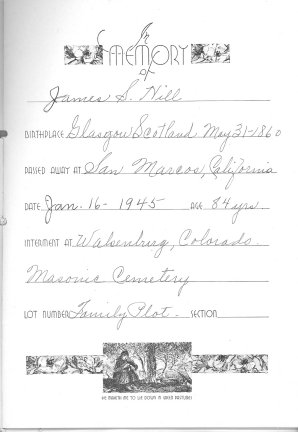 In
MEMORY
of
James S. Hill
BIRTHPLACE Glasgow Scotland May 31-1860
PASSED AWAY AT San Marcos, California
DATE Jan. 16-1945 AGE 84 yrs
INTERMENT AT Walsenburg, Colorado.
Masonic Cemetery
LOT NUMBER Family Plot. SECTION
HE MAKETH ME TO LIE DOWN IN GREEN PASTURES